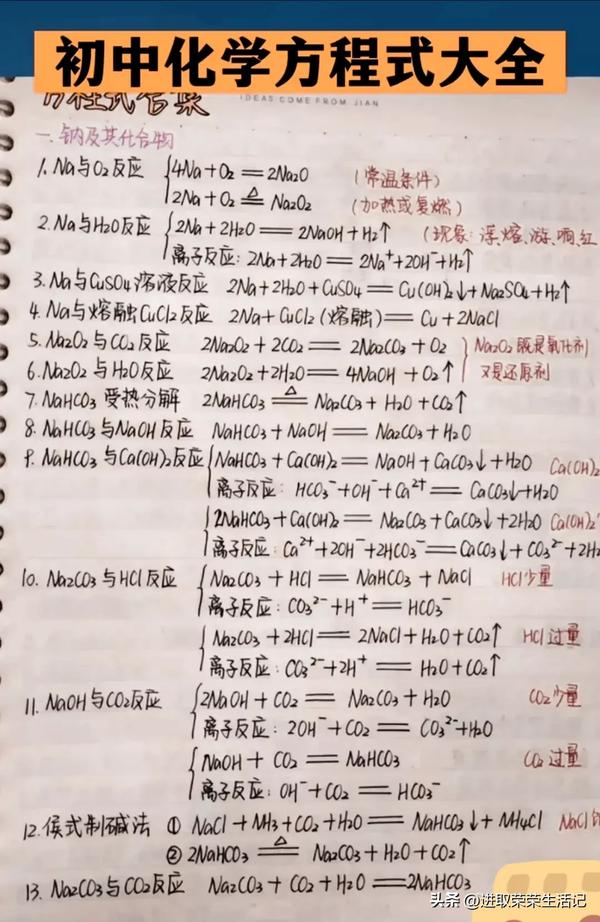 初中化学方程式大全
方程式合集
IDEAS COME FROM JIAN
一.钠及其化合物
1. Na与O₂反应 {4Na+O₂══2Na₂O (常温条件)
2Na+O₂≜Na₂O₂ (加热或复燃)
2. Na与H₂O反应 {2Na+2H₂O══2NaOH+H₂↑ (现象:浮、熔、游、响、红
离子反应: 2Na+2H₂O══2Na⁺+2OH⁻+H₂↑
3. Na与CuSO₄溶液反应 2Na+2H₂O+CuSO₄══Cu(OH)₂↓+Na₂SO₄+H₂↑
4. Na与熔融CuCl₂反应 2Na+CuCl₂(熔融)══Cu+2NaCl
5. Na₂O₂与CO₂反应 2Na₂O₂+2CO₂══2Na₂CO₃+O₂ } Na₂O₂既是氧化剂
6. Na₂O₂与H₂O反应 2Na₂O₂+2H₂O══4NaOH+O₂↑ 又是还原剂
7. NaHCO₃受热分解 2NaHCO₃≜Na₂CO₃+H₂O+CO₂↑
8. NaHCO₃与NaOH反应 NaHCO₃+NaOH══Na₂CO₃+H₂O
9. NaHCO₃与Ca(OH)₂反应 {NaHCO₃+Ca(OH)₂══NaOH+CaCO₃↓+H₂O Ca(OH)₂
离子反应: HCO₃⁻+OH⁻+Ca²⁺══CaCO₃↓+H₂O
{2NaHCO₃+Ca(OH)₂══Na₂CO₃+CaCO₃↓+2H₂O Ca(OH)₂
离子反应: Ca²⁺+2OH⁻+2HCO₃⁻══CaCO₃↓+CO₃²⁻+2H₂
10. Na₂CO₃与HCl反应 {Na₂CO₃+HCl══NaHCO₃+NaCl HCl少量
离子反应: CO₃²⁻+H⁺══HCO₃⁻
{Na₂CO₃+2HCl══2NaCl+H₂O+CO₂↑ HCl过量
离子反应: CO₃²⁻+2H⁺══H₂O+CO₂↑
11. NaOH与CO₂反应 {2NaOH+CO₂══Na₂CO₃+H₂O CO₂少量
离子反应: 2OH⁻+CO₂══CO₃²⁻+H₂O
{NaOH+CO₂══NaHCO₃ CO₂过量
离子反应: OH⁻+CO₂══HCO₃⁻
12. 侯式制碱法 ① NaCl+NH₃+CO₂+H₂O══NaHCO₃↓+NH₄Cl NaCl
② 2NaHCO₃≜Na₂CO₃+H₂O+CO₂↑
13. Na₂CO₃与CO₂反应 Na₂CO₃+CO₂+H₂O══2NaHCO₃
头条 @进取荣荣生活记